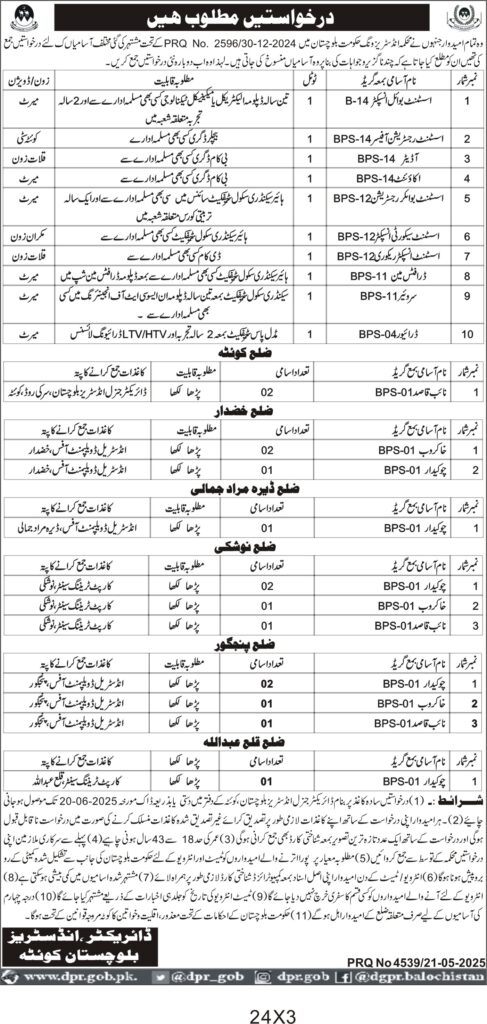 درخواستیں مطلوب ہیں
وہ تمام امیدوار جنہوں نے محکمہ انڈسٹریز ونگ حکومت بلوچستان میں PRQ No. 2596/30-12-2024 کے تحت مشتہر کی گئی مختلف آسامیاں کے لئے درخواستیں جمع
کی تھیں ان کو مطلع کیا جاتا ہے کہ چند ناگزیر وجوہات کی بنا پر وہ آسامیاں منسوخ کی جاتی ہیں۔ لہذا وہ اب دوبارہ نئی درخواستیں جمع کریں۔
نمبر شمار نام آسامی بمعہ گریڈ ٹوٹل مطلوبہ قابلیت زون/ڈویژن
1 اسسٹنٹ بوائلر انسپکٹر B-14 1 تین سالہ ڈپلومہ الیکٹریکل یا مکینیکل ٹیکنالوجی کسی بھی مسلمہ ادارے سے اور 2 سالہ میرٹ
تجربہ متعلقہ شعبہ میں
2 اسسٹنٹ رجسٹریشن آفیسر BPS-14 1 بیچلر ڈگری کسی بھی مسلمہ ادارے کوئٹہ سٹی
3 آڈیٹر BPS-14 1 بی کام ڈگری کسی بھی مسلمہ ادارے سے قلات زون
4 اکاؤنٹنٹ BPS-14 1 بی کام ڈگری کسی بھی مسلمہ ادارے سے میرٹ
5 اسسٹنٹ بوائلر رجسٹریشن BPS-12 1 ہائیر سیکنڈری سکول سرٹیفکیٹ سائنس میں کسی بھی مسلمہ ادارے سے اور ایک سالہ میرٹ
تربیتی کورس متعلقہ شعبہ میں
6 اسسٹنٹ سیکورٹی انسپکٹر BPS-12 1 ہائیر سیکنڈری سکول سرٹیفکیٹ کسی بھی مسلمہ ادارے سے مکران زون
7 اسسٹنٹ ریکوری BPS-12 1 ڈی کام کسی بھی مسلمہ ادارے سے قلات زون
8 ڈرافٹس مین BPS-11 1 ہائیر سیکنڈری سکول سرٹیفکیٹ کسی بھی مسلمہ ادارے سے بمعہ ڈپلومہ ڈرافٹس مین شپ میں میرٹ
9 سرویئر BPS-11 1 سیکنڈری سکول سرٹیفکیٹ بمعہ تین سالہ ڈپلومہ ان ایسوسی ایٹ آف انجینئرنگ میں کسی میرٹ
بھی مسلمہ ادارے سے۔
10 ڈرائیور BPS-04 1 مڈل پاس سرٹیفکیٹ بمعہ 2 سالہ تجربہ اور LTV/HTV ڈرائیونگ لائسنس میرٹ
ضلع کوئٹہ
نمبر شمار نام آسامی بمعہ گریڈ تعداد اسامی مطلوبہ قابلیت کاغذات جمع کرانے کا پتہ
1 نائب قاصد BPS-01 02 پڑھا لکھا ڈائریکٹر جنرل انڈسٹریز بلوچستان، سرکی روڈ، کوئٹہ
ضلع خضدار
نمبر شمار نام آسامی بمعہ گریڈ تعداد اسامی مطلوبہ قابلیت کاغذات جمع کرانے کا پتہ
1 خاکروب BPS-01 02 پڑھا لکھا انڈسٹریل ڈویلپمنٹ آفس، خضدار
2 چوکیدار BPS-01 01 پڑھا لکھا انڈسٹریل ڈویلپمنٹ آفس، خضدار
ضلع ڈیرہ مراد جمالی
نمبر شمار نام آسامی بمعہ گریڈ تعداد اسامی مطلوبہ قابلیت کاغذات جمع کرانے کا پتہ
1 چوکیدار BPS-01 01 پڑھا لکھا انڈسٹریل ڈویلپمنٹ آفس، ڈیرہ مراد جمالی
ضلع نوشکی
نمبر شمار نام آسامی بمعہ گریڈ تعداد اسامی مطلوبہ قابلیت کاغذات جمع کرانے کا پتہ
1 چوکیدار BPS-01 02 پڑھا لکھا کارپٹ ٹریننگ سینٹر، نوشکی
2 خاکروب BPS-01 01 پڑھا لکھا کارپٹ ٹریننگ سینٹر، نوشکی
3 نائب قاصد BPS-01 01 پڑھا لکھا کارپٹ ٹریننگ سینٹر، نوشکی
ضلع پنجگور
نمبر شمار نام آسامی بمعہ گریڈ تعداد اسامی مطلوبہ قابلیت کاغذات جمع کرانے کا پتہ
1 چوکیدار BPS-01 02 پڑھا لکھا انڈسٹریل ڈویلپمنٹ آفس، پنجگور
2 خاکروب BPS-01 01 پڑھا لکھا انڈسٹریل ڈویلپمنٹ آفس، پنجگور
3 نائب قاصد BPS-01 01 پڑھا لکھا انڈسٹریل ڈویلپمنٹ آفس، پنجگور
ضلع قلع عبداللہ
نمبر شمار نام آسامی بمعہ گریڈ تعداد اسامی مطلوبہ قابلیت کاغذات جمع کرانے کا پتہ
1 چوکیدار BPS-01 01 پڑھا لکھا کارپٹ ٹریننگ سینٹر، قلع عبداللہ
شرائط:۔ (1) درخواستیں سادہ کاغذ پر بنام ڈائریکٹر جنرل انڈسٹریز بلوچستان، کوئٹہ کے دفتر میں دستی یا بذریعہ ڈاک مورخہ 20-06-2025 تک موصول ہو جانی
چاہئے (2)۔ ہر امیدوار اپنی درخواست کے ساتھ اپنے کاغذات لازمی طور پر تصدیق کرائے غیر تصدیق شدہ کاغذات منسلک کرنے کی صورت میں درخواست نا قابل قبول
ہوگی اور درخواست کے ساتھ ایک عدد تازہ ترین تصویر بمعہ شناختی کارڈ بھی جمع کرانی ہوگی (3) عمر کی حد 18 سے 43 سال ہونی چاہیے (4) پہلے سے سرکاری ملازمین اپنی
درخواستیں محکمہ کے توسط سے جمع کروائیں (5) مطلوبہ معیار پر پورا اترنے والے امیدواروں کو ٹیسٹ اور انٹرویو کے لئے حکومت بلوچستان کی جانب سے تشکیل شدہ کمیٹی کے رو
برو پیش ہونا ہوگا (6) انٹرویو/ٹیسٹ کے دن امیدوار اپنی اصل اسناد بمعہ کمپیوٹرائزڈ شناختی کارڈ لازمی طور پر ہمراہ لائے (7) مشتہر شدہ آسامیوں میں کمی بیشی ہو سکتی ہے (8)
انٹرویو کے لئے آنے والے امیدواروں کو کسی قسم کا سفری خرچ نہیں دیا جائے گا (9) ٹیسٹ انٹرویو کی تاریخ کو جلد ہی اخبارات کے ذریعے مشتہر کیا جائے گا (10) درجہ چہارم
کی آسامیوں کے لیے صرف متعلقہ ضلع کے امیدوار اہل ہوں گے (11) حکومت بلوچستان کے احکامات کے تحت معذور، اقلیت و خواتین کا کوٹہ مروجہ قوانین کے تحت ہوگا۔
ڈائریکٹر، انڈسٹریز
بلوچستان کوئٹہ
PRQ No 4539/21-05-2025
www.dpr.gob.pk. @dpr_gob dpr.gob @dgpr.balochistan
24X3